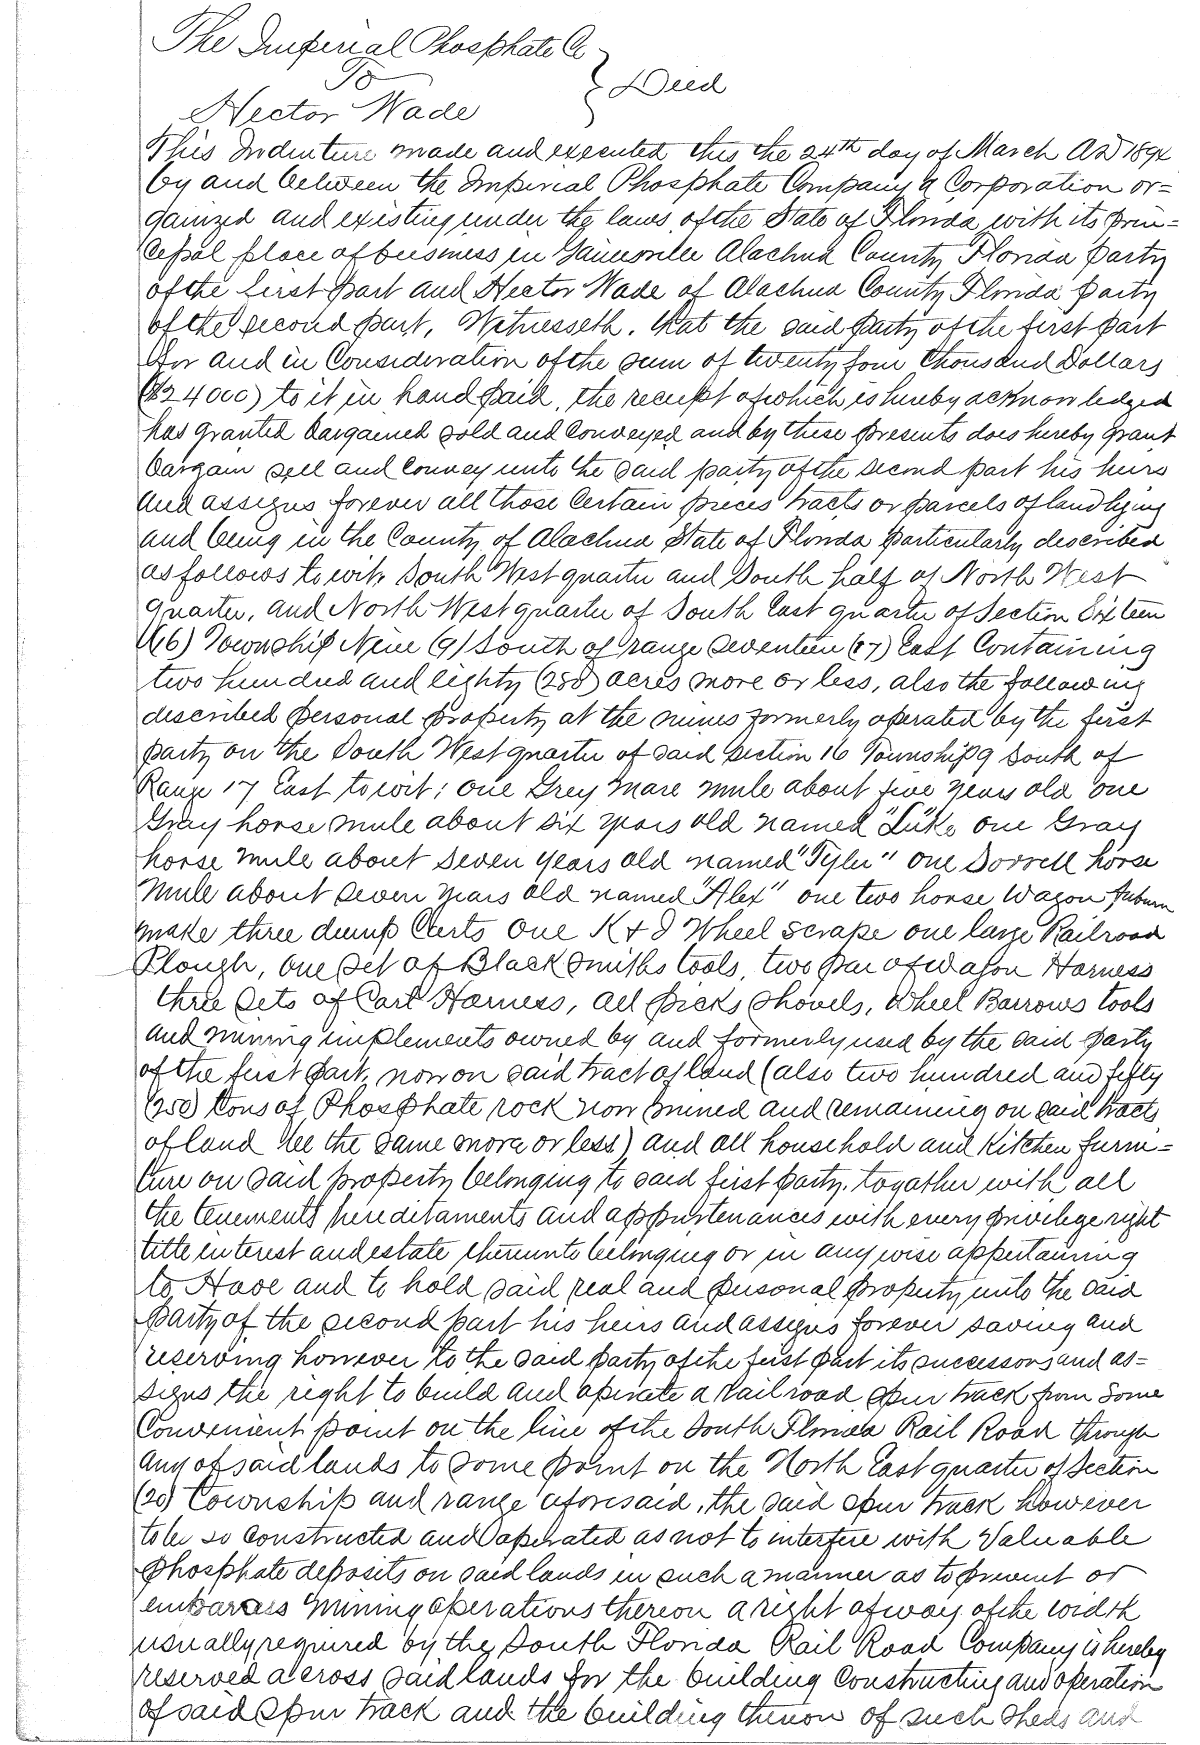 The Imperial Phosphate Co
To } Deed
Hector Wade
This Indenture made and executed this the 24th day of March AD 189
by and between the Imperial Phosphate Company a Corporation or=
ganized and existing under the laws of the State of Florida with its prin=
cipal place of business in Gainesville Alachua County Florida party
of the first part and Hector Wade of Alachua County Florida party
of the second part, Witnesseth, that the said party of the first part
for and in Consideration of the sum of twenty four thousand Dollars
($24000) to it in hand paid, the receipt of which is hereby acknowledged
has granted bargained sold and Conveyed and by these presents does hereby grant
bargain sell and Convey unto the said party of the second part his heirs
and assigns forever all those Certain pieces tracts or parcels of land lying
and being in the County of Alachua State of Florida particularly described
as follows to wit, South West quarter and South half of North West
quarter, and North West quarter of South East quarter of Section Sixteen
(16) Township Nine (9) South of range seventeen (17) East Containing
two hundred and eighty (280) acres more or less, also the following
described personal property at the mines formerly operated by the first
party on the South West quarter of said section 16 Township 9 South of
Range 17 East to wit; one Grey mare mule about five years old one
Gray horse mule about six years old named "Luke, one Gray
horse mule about seven years old named "Tyler" one Sorrell horse
mule about seven years old named "Alex" one two horse Wagon Auburn
make three dump Carts One K & J Wheel scrape one large Railroad
Plough, one set of Blacksmiths tools, two pair of Wagon Harness
three sets of Cart Harness, all picks shovels, Wheel Barrows tools
and mining implements owned by and formerly used by the said party
of the first part, now on said tract of land (also two hundred and fifty
(250) tons of Phosphate rock now mined and remaining on said tracts
of land be the same more or less) and all household and Kitchen furni=
ture on said property belonging to said first party, together with all
the tenements hereditaments and appurtenances with every privilege right
title interest and estate thereunto belonging or in any wise appertaining
to Have and to hold said real and personal property unto the said
party of the second part his heirs and assigns forever saving and
reserving however to the said party of the first part its successors and as=
signs the right to build and operate a railroad spur track from some
Convenient point on the line of the South Florida Rail Road through
any of said lands to some point on the North East quarter of Section
(20) Township and range aforesaid, the said spur track however
to be so constructed and operated as not to interfere with Valuable
phosphate deposits on said lands in such a manner as to prevent or
embarass mining operations thereon a right of way of the width
usually required by the South Florida Rail Road Company is hereby
reserved across said lands for the building constructing and operation
of said spur track and the building thereon of such sheds and